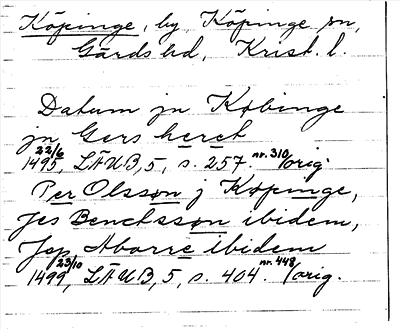 Köpinge, by Köpinge sn,
Gärds hd, Krist. l.
Datum jn Købinge
jn Gers heret
22/6 1495, LÄUB, 5, s. 257. nr. 310 /orig.
Per Olsson j Køpinge,
Jes Benctsson ibidem,
Jep Aborre ibidem
23/10 1499, LÄUB, 5, s. 404. nr. 448 /orig.